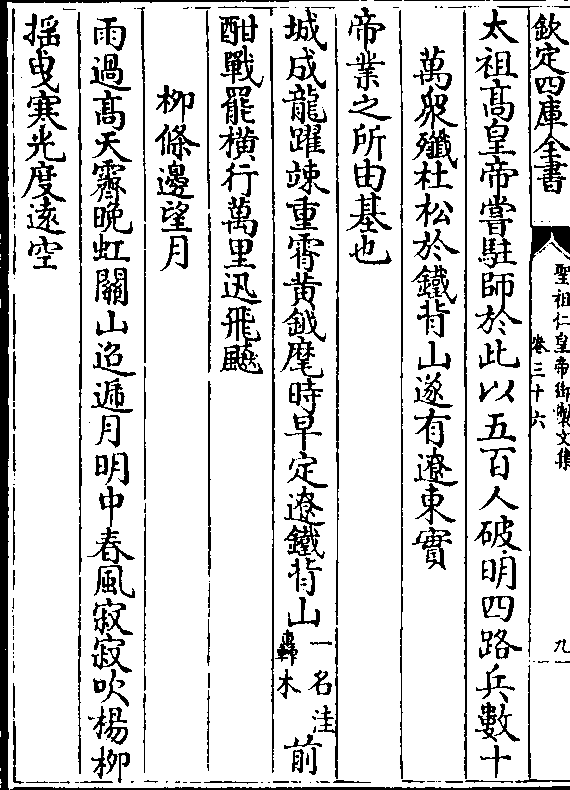 欽定四庫全書
聖祖仁皇帝御製文集
卷三十六
九
太祖高皇帝嘗駐師於此以五百人破明四路兵數十
萬衆殲杜松於鐵背山遂有遼東實
帝業之所由基也
城成龍躍竦重霄黄鉞麾時早定遼鐵背山一名洼轟木前
酣戰罷横行萬里迅飛飈
柳條邊望月
雨過高天霽晚虹關山迢遞月明中春風寂寂吹楊柳
揺曳寒光度遠空